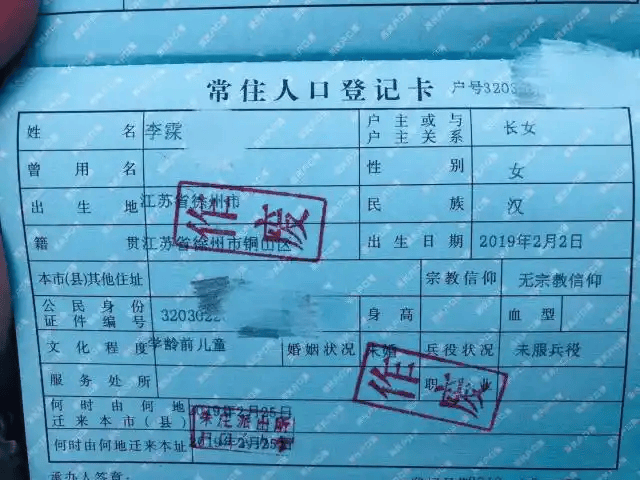 常住人口登记卡 户号3203
姓名 李霂 户主或与户主关系 长女
曾用名 性别 女
出生地 江苏省徐州市 民族 汉
籍贯 江苏省徐州市铜山区 出生日期 2019年2月2日
作废
本市(县)其他住址 宗教信仰 无宗教信仰
公民身份证件编号 3203022 身高 血型
文化程度 学龄前儿童 婚姻状况 未婚 兵役状况 未服兵役
服务处所 职业
作废
何时由何地迁来本市(县) 2019年2月25日
何时由何地迁来本址 2019年2月25日
承办人签章: